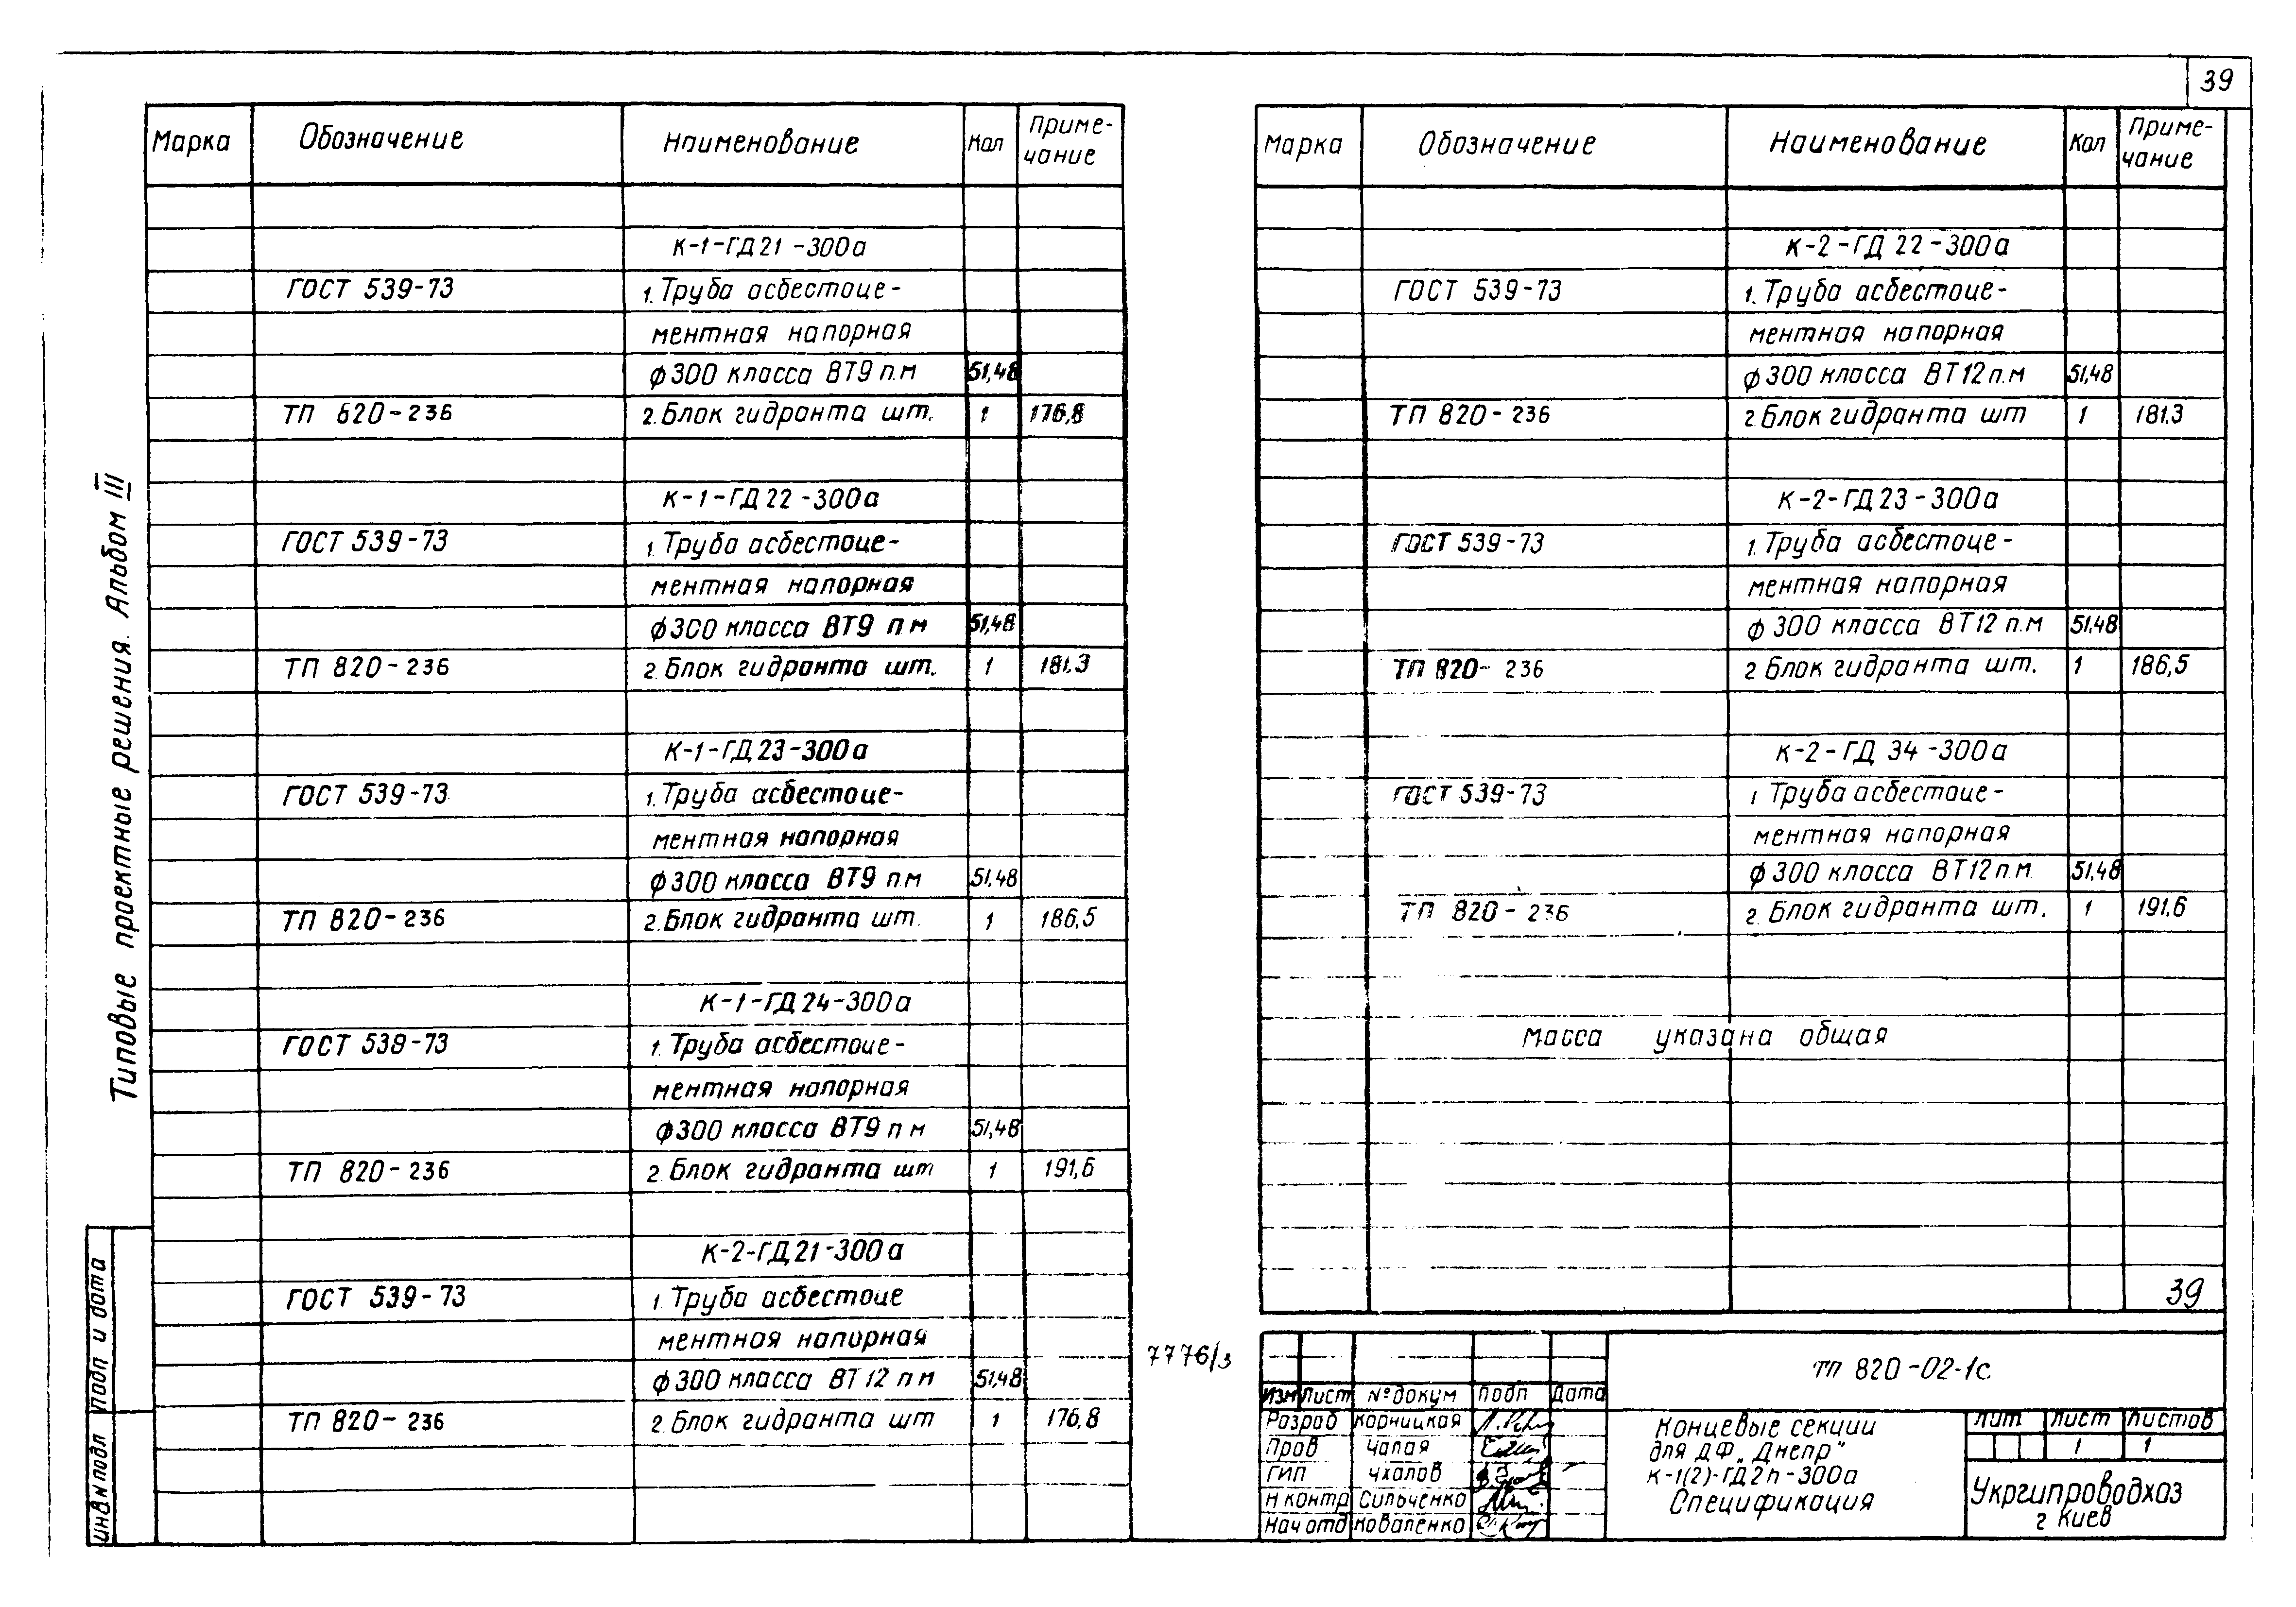 39
Марка Обозначение Наименование Кол Приме-
чание
К-1-ГД21-300а
ГОСТ 539-73 1. Труба асбестоце-
ментная напорная
ф300 класса ВТ9 п.м 51,48
ТП 820-236 2. Блок гидранта шт. 1 176,8
К-1-ГД22-300а
ГОСТ 539-73 1. Труба асбестоце-
ментная напорная
ф300 класса ВТ9 п м 51,48
ТП 820-236 2. Блок гидранта шт. 1 181,3
К-1-ГД23-300а
ГОСТ 539-73 1. Труба асбестоце-
ментная напорная
ф300 класса ВТ9 п.м 51,48
ТП 820-236 2. Блок гидранта шт. 1 186,5
К-1-ГД24-300а
ГОСТ 539-73 1. Труба асбестоце-
ментная напорная
ф300 класса ВТ9 п м 51,48
ТП 820-236 2. Блок гидранта шт 1 191,6
К-2-ГД21-300а
ГОСТ 539-73 1. Труба асбестоце
ментная напорная
ф300 класса ВТ12 п м 51,48
ТП 820-236 2. Блок гидранта шт 1 176,8
Типовые проектные решения. Альбом III
Инв № подл Подп и дата
7776/3
Марка Обозначение Наименование Кол Приме-
чание
К-2-ГД 22-300а
ГОСТ 539-73 1. Труба асбестоце-
ментная напорная
ф300 класса ВТ12 п.м 51,48
ТП 820-236 2. Блок гидранта шт 1 181,3
К-2-ГД23-300а
ГОСТ 539-73 1. Труба асбестоце-
ментная напорная
ф 300 класса ВТ12 п.м 51,48
ТП 820-236 2 Блок гидранта шт. 1 186,5
К-2-ГД 34-300а
ГОСТ 539-73 1 Труба асбестоце-
ментная напорная
ф 300 класса ВТ12 п.м. 51,48
ТП 820-236 2. Блок гидранта шт. 1 191,6
Масса указана общая
39
ТП 820-02-1с.
Изм Лист № докум Подп Дата
Разраб Корницкая
Пров Чалая
ГИП Чхалов
Н контр Сильченко
Нач отд Коваленко
Концевые секции
для ДФ „Днепр"
К-1(2)-ГД2п-300а
Спецификация
Лит Лист Листов
1 1
Укргипроводхоз
г Киев